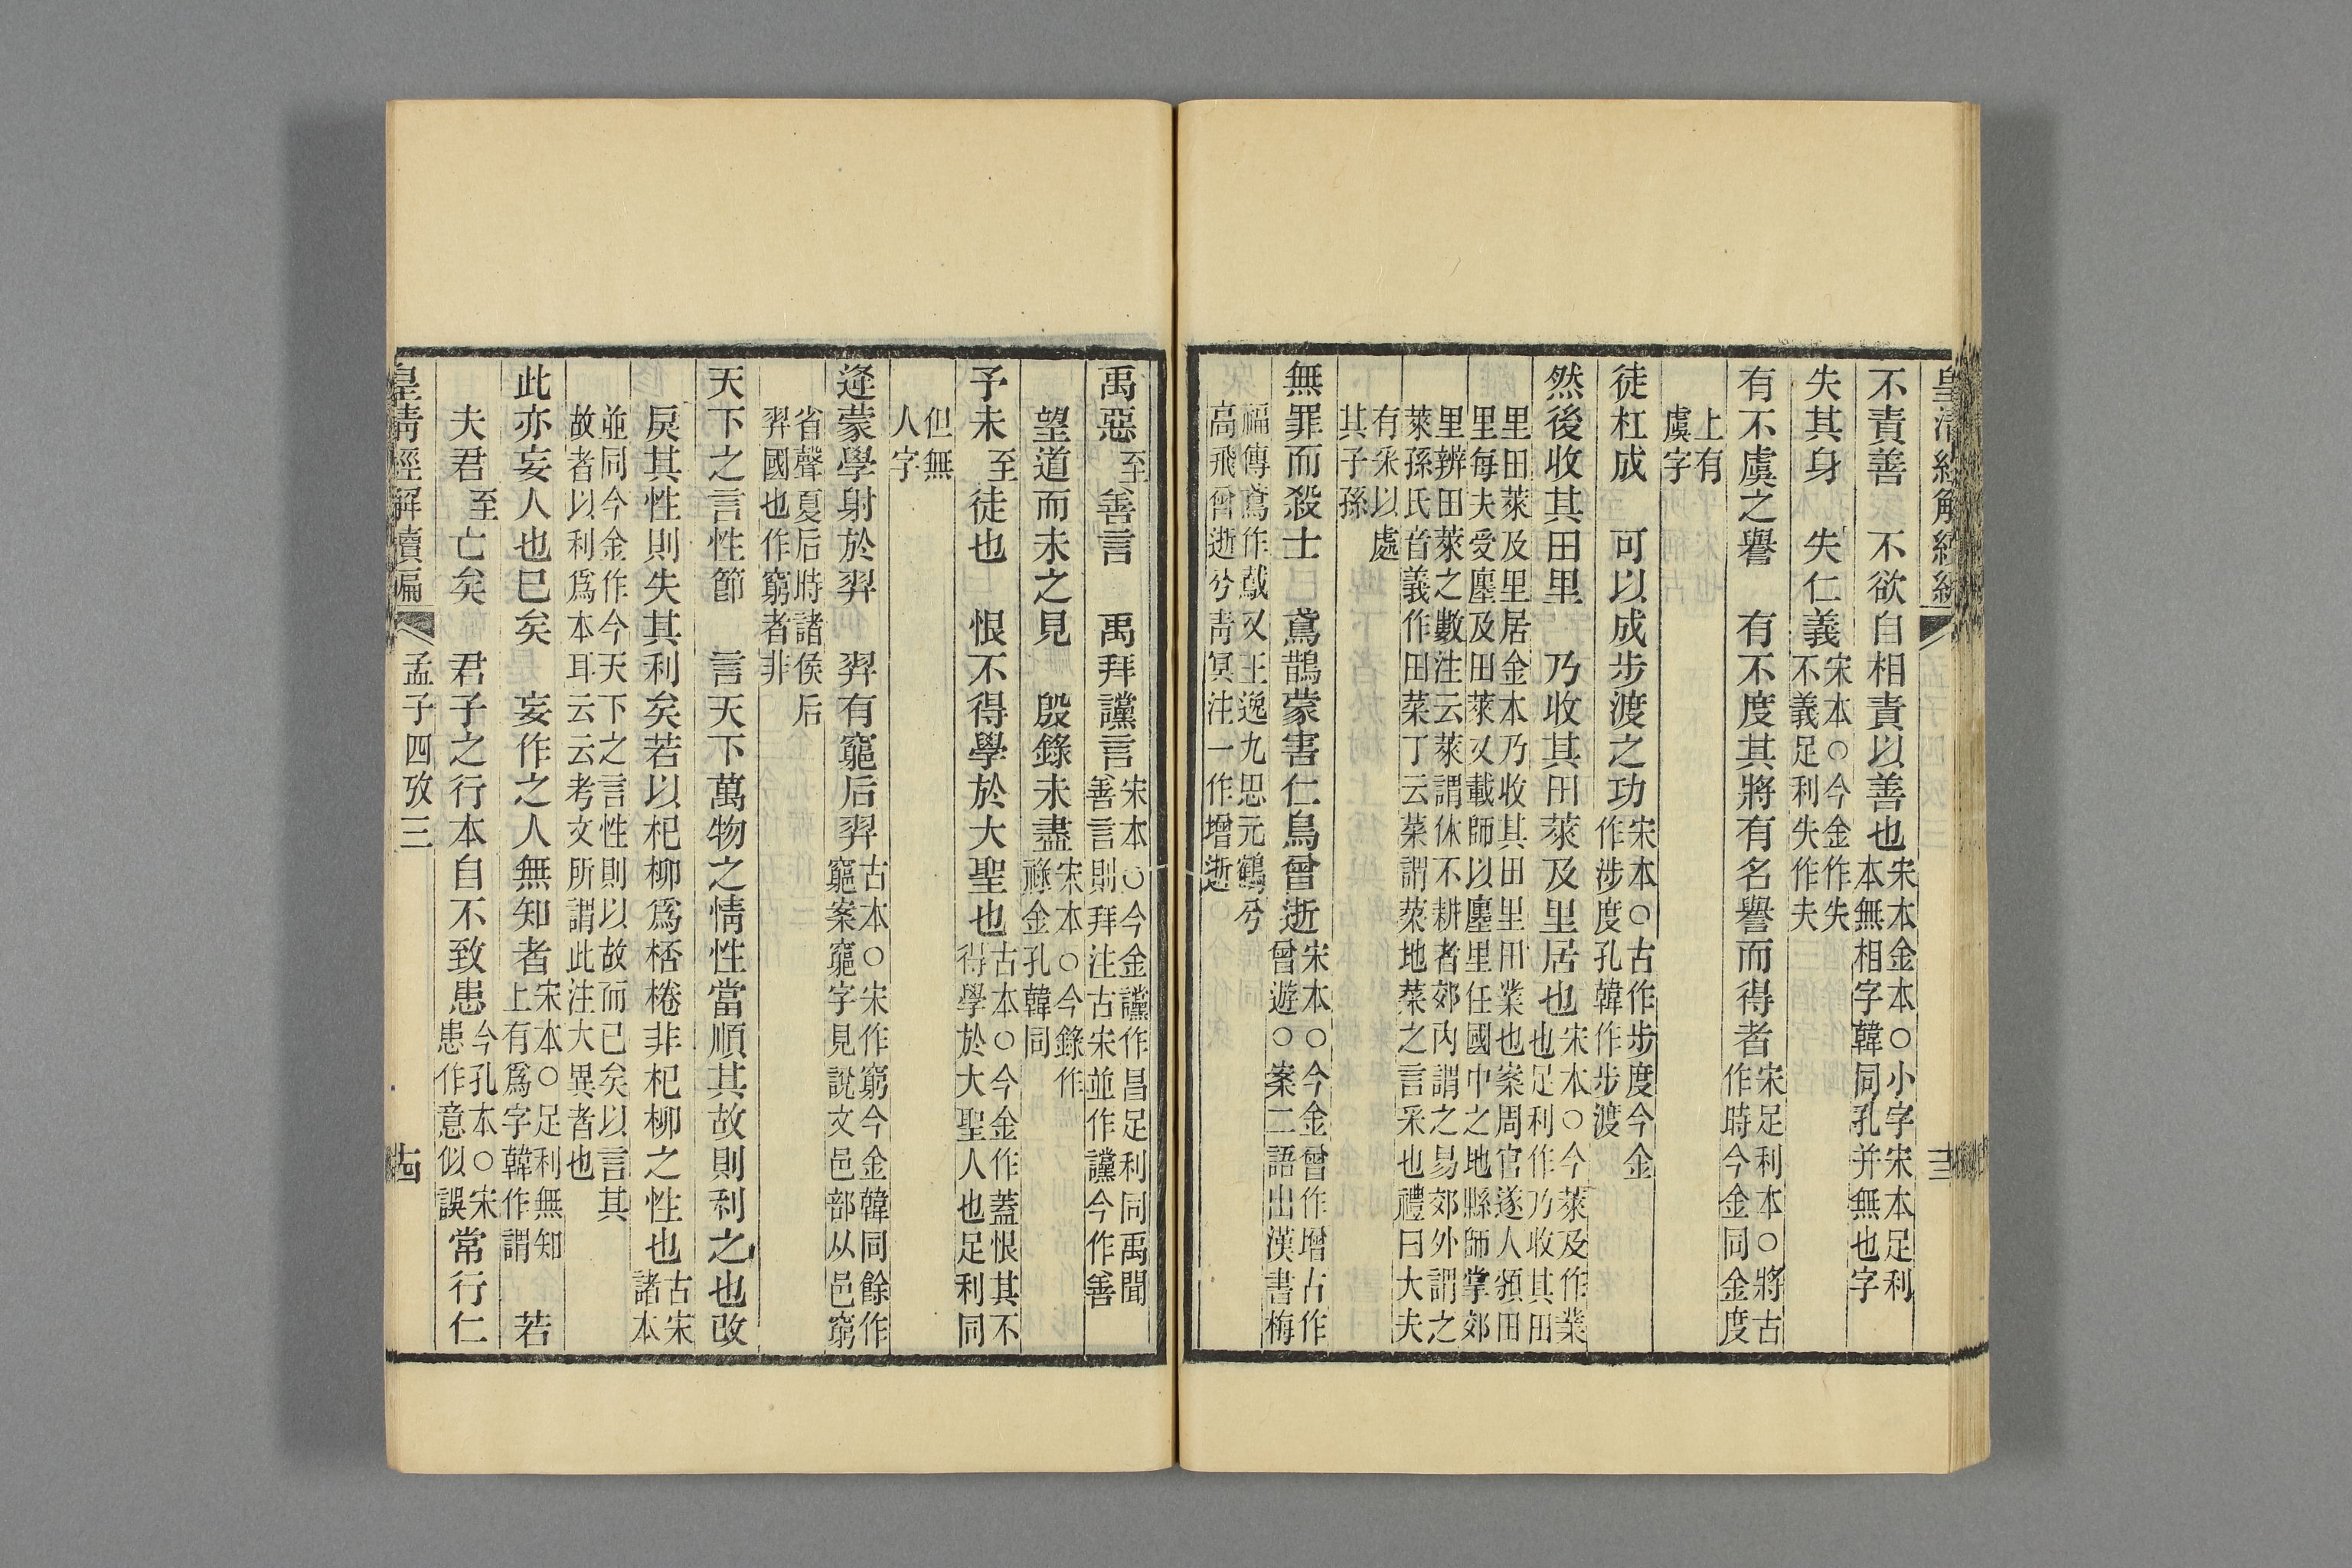 皇清經解續編
十三
不責善　不欲自相責以善也宋本金本○小字宋本足利本無相字韓同孔并無也字
失其身　失仁義宋本○今金作失不義足利失作夫
有不虞之譽　有不度其將有名譽而得者宋足利本○將古作時今金同金度
上有虞字
徒杠成　可以成步渡之功宋本○古作步度今金作涉度孔韓作步渡
然後收其田里　乃收其田萊及里居也宋本○今萊及作業也足利作乃收其田
里田萊及里居金本乃收其田里田業也案周官遂人頒田里每夫受廛及田萊又載師以廛里任國中之地縣師掌郊
里辨田萊之數注云萊謂休不耕者郊內謂之易郊外謂之萊孫氏音義作田菜丁云菜謂菜地菜之言采也禮曰大夫
有采以處其子孫
無罪而殺士　鳶鵲蒙害仁鳥曾逝宋本○今金曾作增古作曾遊○案二語出漢書梅
福傳鳶作䳒又王逸九思元鶴兮高飛曾逝兮靑冥注一作增逝
禹惡至善言　禹拜讜言宋本○今金讜作昌足利同禹聞善言則拜注古宋並作讜今作善
望道而未之見　殷錄未盡宋本○今錄作祿金孔韓同
予未至徒也　恨不得學於大聖也古本○今金作蓋恨其不得學於大聖人也足利同
但無人字
逢蒙學射於羿　羿有竆后羿古本○宋作窮今金韓同餘作竆案竆字見說文邑部从邑窮
省聲夏后時諸侯后羿國也作窮者非
天下之言性節　言天下萬物之情性當順其故則利之也改
戾其性則失其利矣若以杞柳爲桮棬非杞柳之性也古宋諸本
並同今金作今天下之言性則以故而已矣以言其故者以利爲本耳云云考文所謂此注大異者也
此亦妄人也已矣　妄作之人無知者宋本○足利無知上有爲字韓作謂　若
夫君至亡矣　君子之行本自不致患今孔本○宋患作意似誤常行仁
皇淸經解續編　孟子四攷三
十四